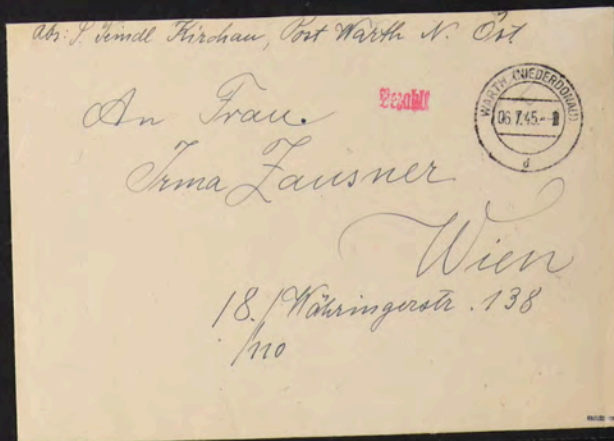 Abs: J. Teindl Kirchau, Post Warth N. Öst
Bezahlt
WARTH (NIEDERDONAU)
06.7.45.--
d
An Frau.
Irma Zausner
Wien
18./Währingerstr. 138
/110